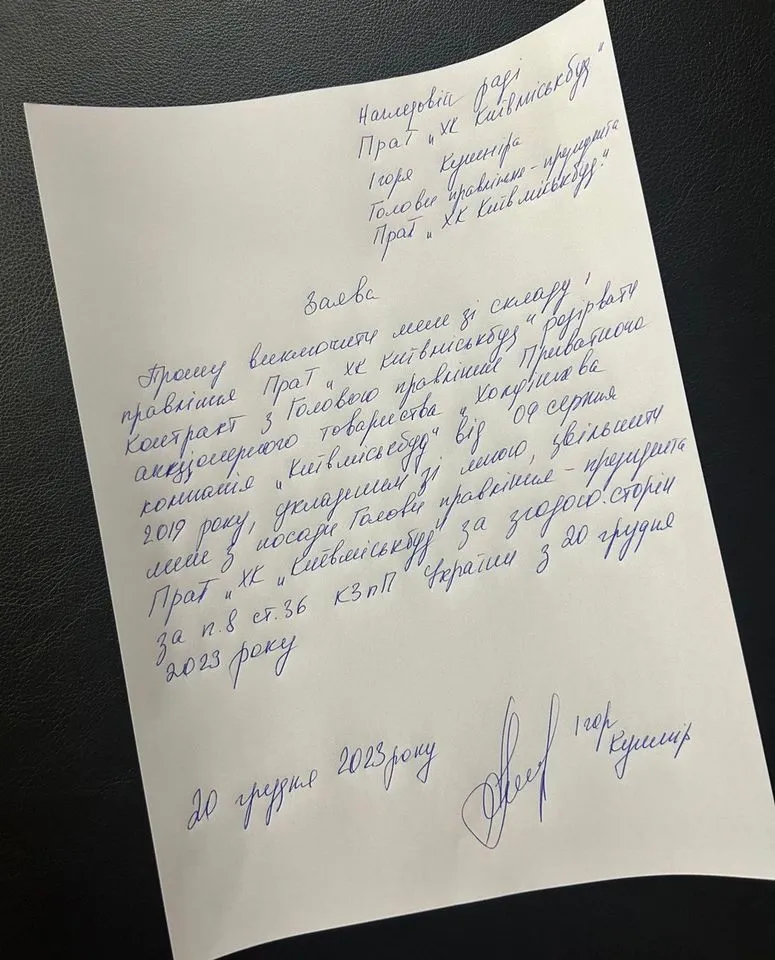 Наглядовій раді
ПраТ „ХК Київміськбуд"
Ігоря Кушніра
Голови правління - президента
ПраТ „ХК Київміськбуд"
Заява
Прошу виключити мене зі складу
правління ПраТ „ХК Київміськбуд" розірвати
Контракт з Головою правління Приватного
акціонерного товариства „Холдінгова
компанія „Київміськбуд" від 09 серпня
2019 року, укладений зі мною, звільнити
мене з посади Голови правління - президента
ПраТ „ХК „Київміськбуд" за згодою сторін
за п.8 ст.36 КЗпП України з 20 грудня
2023 року
20 грудня 2023 року
Ігор
Кушнір